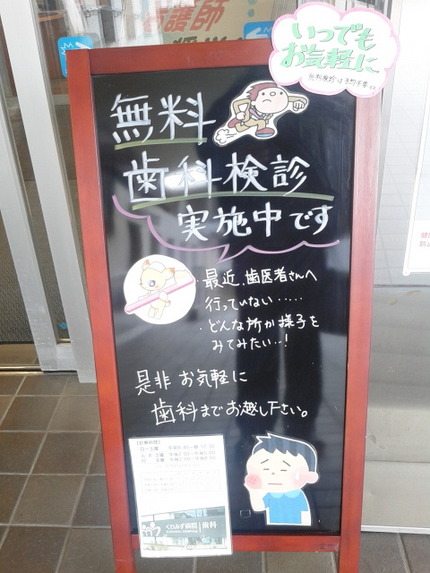 看護師
いつでも
お気軽に
無料
歯科検診
実施中です
・最近、歯医者さんへ
行っていない・・・・・
・どんな所か様子を
みてみたい・・!
是非 お気軽に
歯科までお越し下さい。
くわみず病院 歯科